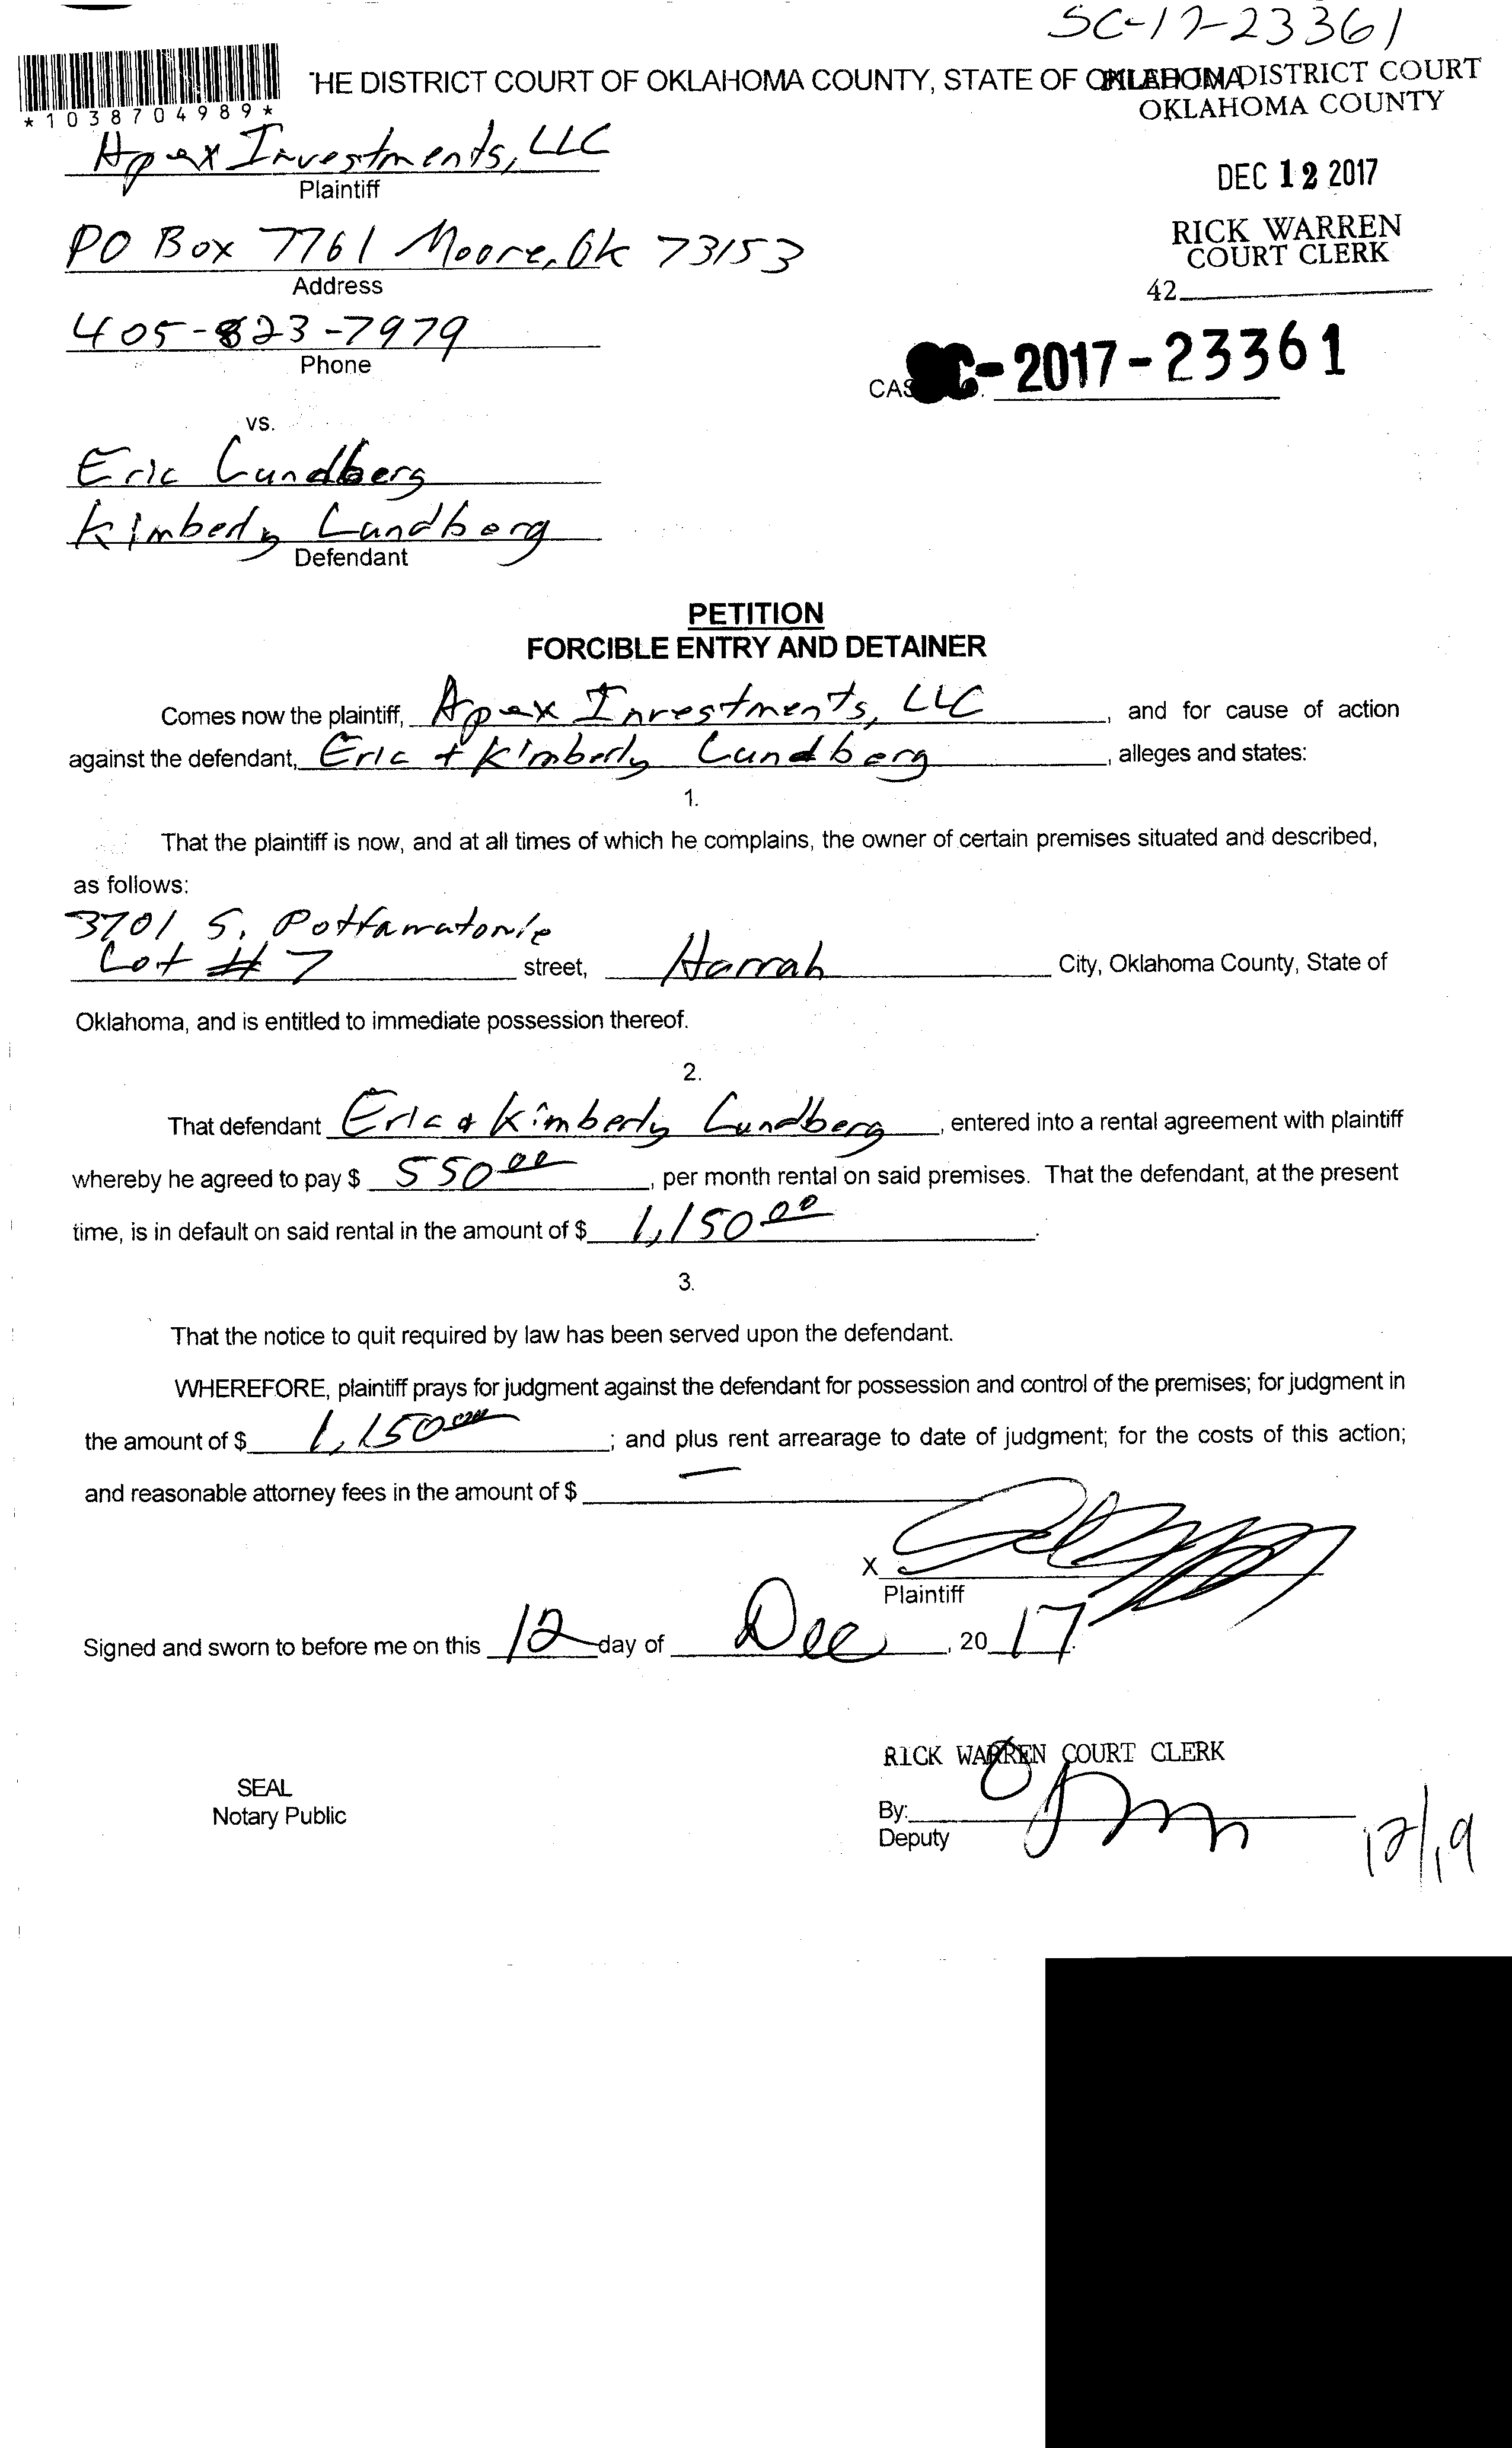 SC-17-23361
*1038704989*
HE DISTRICT COURT OF OKLAHOMA COUNTY, STATE OF OKLAHOMA
DISTRICT COURT
OKLAHOMA COUNTY
Apex Investments, LLC
Plaintiff
DEC 12 2017
PO Box 7761 Moore, Ok 73153
Address
RICK WARREN
COURT CLERK
42
405-823-7979
Phone
CAS C-2017-23361
vs.
Eric Lundberg
Kimberly Lundberg
Defendant
PETITION
FORCIBLE ENTRY AND DETAINER
Comes now the plaintiff, Apex Investments, LLC, and for cause of action
against the defendant, Eric + Kimberly Lundberg, alleges and states:
1.
That the plaintiff is now, and at all times of which he complains, the owner of certain premises situated and described,
as follows:
3701 S. Pottawatomie
Lot # 7 street, Harrah City, Oklahoma County, State of
Oklahoma, and is entitled to immediate possession thereof.
2.
That defendant Eric & Kimberly Lundberg, entered into a rental agreement with plaintiff
whereby he agreed to pay $ 550.00, per month rental on said premises. That the defendant, at the present
time, is in default on said rental in the amount of $ 1,150.00.
3.
That the notice to quit required by law has been served upon the defendant.
WHEREFORE, plaintiff prays for judgment against the defendant for possession and control of the premises; for judgment in
the amount of $ 1,150.00; and plus rent arrearage to date of judgment; for the costs of this action;
and reasonable attorney fees in the amount of $
X
Plaintiff
Signed and sworn to before me on this 12 day of Dec, 20 17.
RICK WARREN COURT CLERK
SEAL
Notary Public
By:
Deputy
12/19